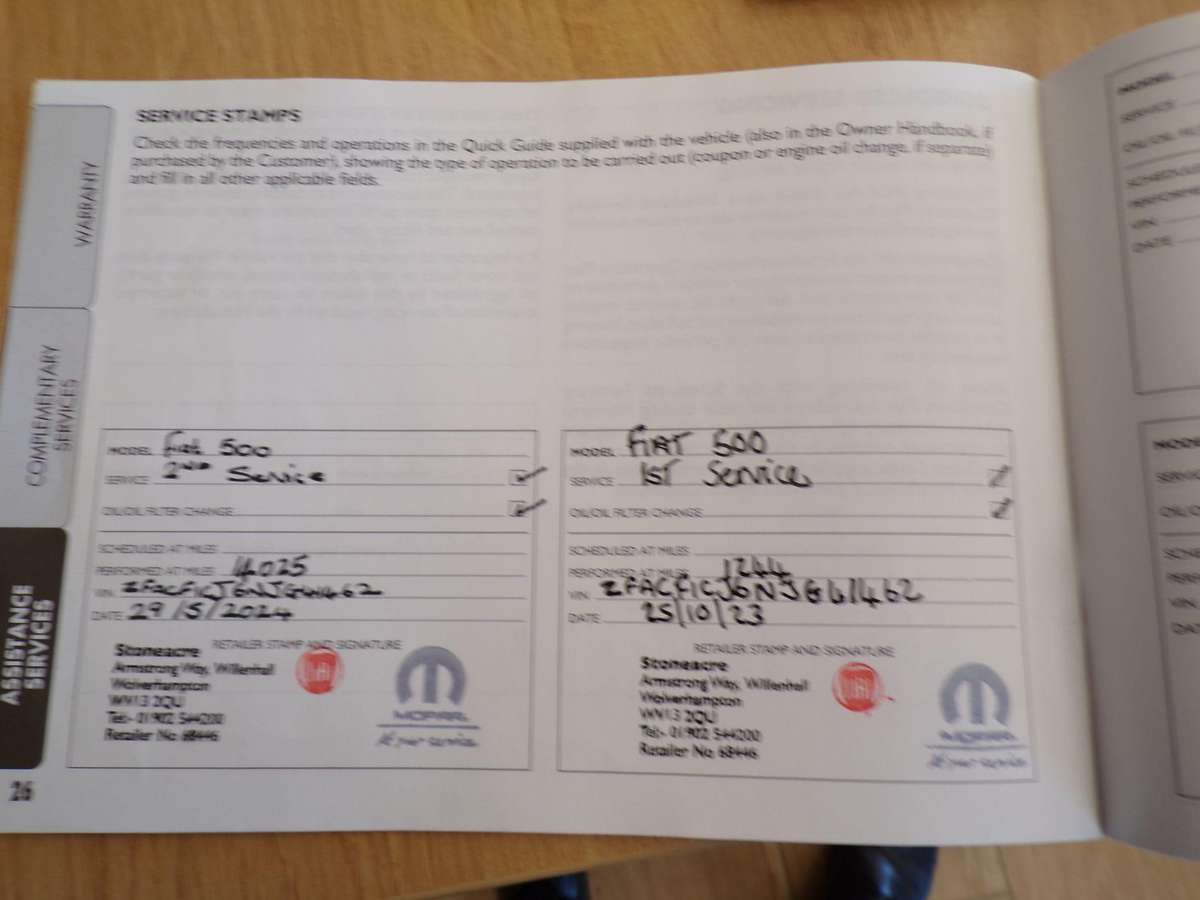 SERVICE STAMPS
Check the frequencies and operations in the Quick Guide supplied with the vehicle (also in the Owner Handbook, if
purchased by the Customer), showing the type of operation to be carried out (coupon or engine oil change, if separate)
and fill in all other applicable fields.
WARRANTY
COMPLEMENTARY
SERVICES
ASSISTANCE
SERVICES
MODEL Fiat 500
SERVICE 2ND Service
OIL/OIL FILTER CHANGE
SCHEDULED AT MILES
PERFORMED AT MILES 4025
VIN
DATE 29/5/2024
RETAILER STAMP AND SIGNATURE
Stoneacre
Armstrong Way, Willenhall
Wolverhampton
WV13 2QU
Tel:- 01902 544200
Retailer No 68446
FIAT
MOPAR
At your service
MODEL FIAT 500
SERVICE 1ST Service
OIL/OIL FILTER CHANGE
SCHEDULED AT MILES
PERFORMED AT MILES 1244
VIN
DATE 25/10/23
RETAILER STAMP AND SIGNATURE
Stoneacre
Armstrong Way, Willenhall
Wolverhampton
WV13 2QU
Tel:- 01902 544200
Retailer No 68446
FIAT
MOPAR
At your service
26
MODEL
SERVICE
VIN
DATE